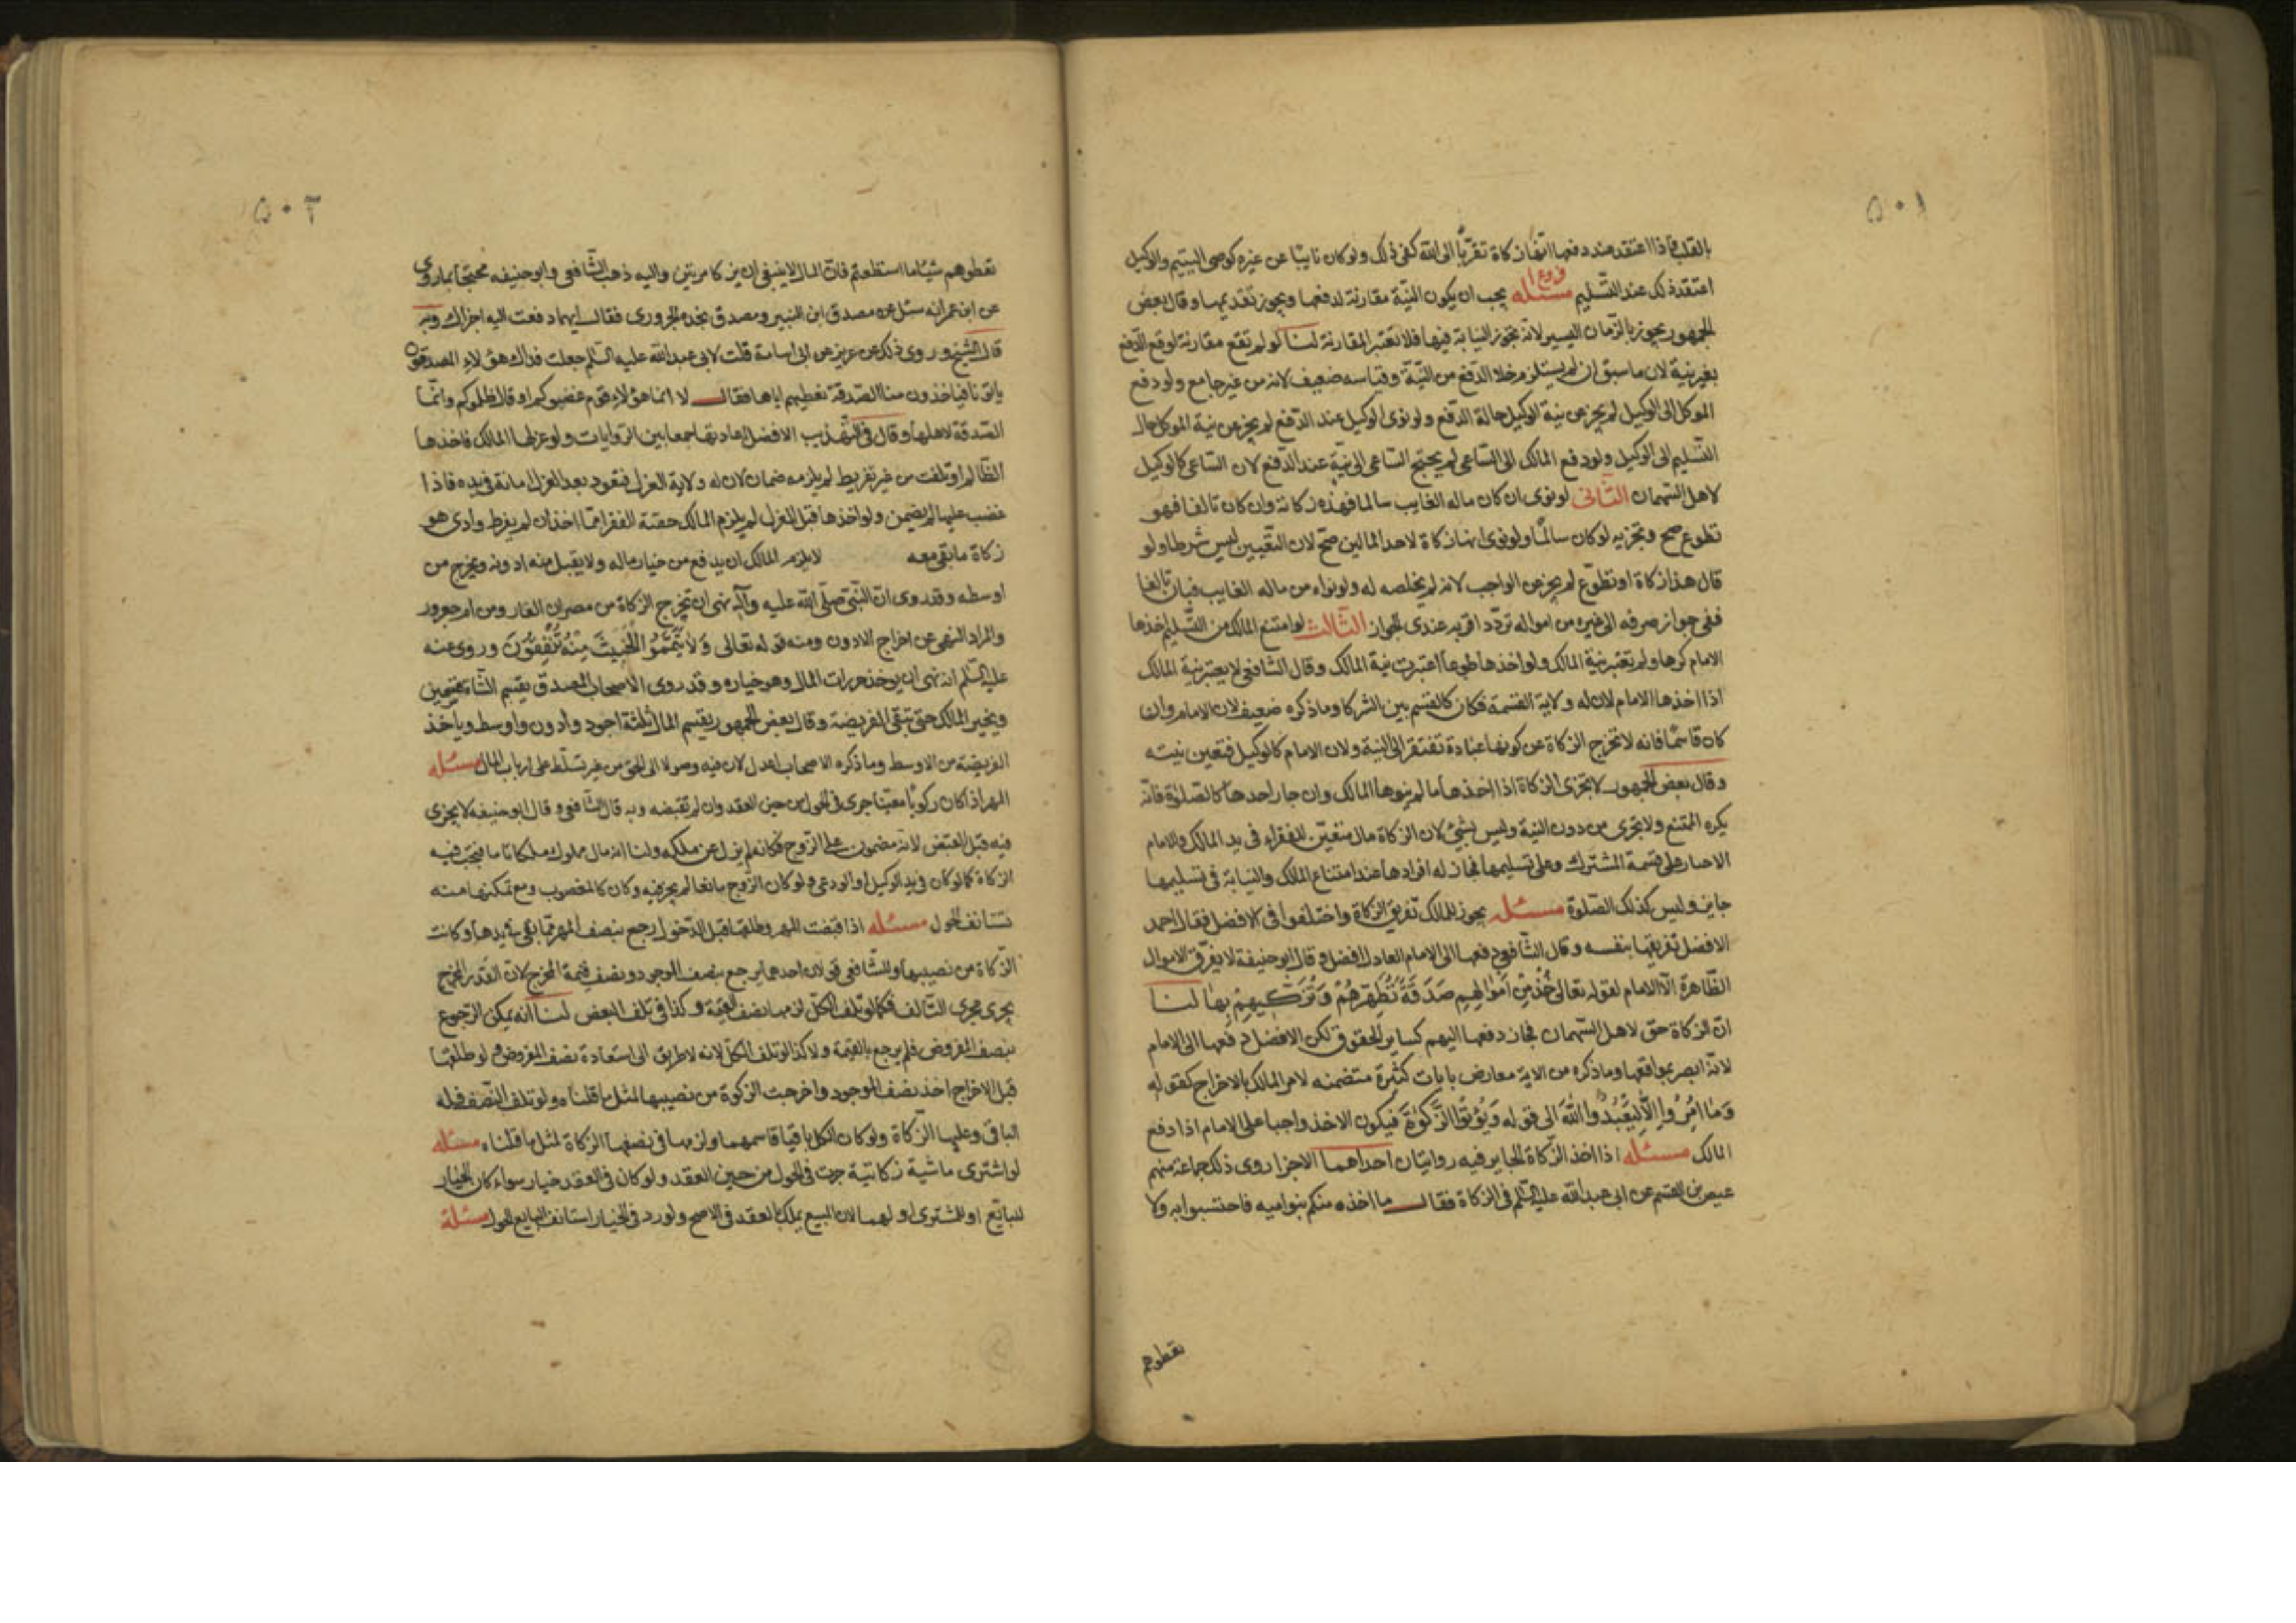 ٥٠١
بالقلب فاذا اعتقد عند دفعها انها زكاة تقربا الى الله كفى ذلك ولو كان نايبا عن غيره كوصى اليتيم والوكيل
اعتقد ذلك عند التسليم فروع ا مسئله يجب ان يكون النية مقارنة لدفعها ويجوز تقديمها وقال بعض
الجمهور يجوز بالزمان اليسير لانه يجوز النيابة فيها فلا تعتبر المقارنة لنا لو لم تقع مقارنة لوقع الدفع
بغير نية لان ما سبق ان لم يستلزم خلا الدفع من النية وقياسه ضعيف لانه من غير جامع ولو دفع
الموكل الى الوكيل لم يجز عن نية الوكيل حالة الدفع ولو نوى الوكيل عند الدفع لم يجز عن نية الموكل حال
التسليم الى الوكيل ولو دفع المالك الى الساعى لم يحتج الساعى الى نية عند الدفع لان الساعى كالوكيل
لاهل السهمان الثانى لو نوى ان كان ماله الغايب سالما فهذه زكاته وان كان تالفا فهو
تطوع صح وتجزيه لو كان سالما ولو نوى انها زكاة لاحد المالين صح لان التعيين ليس شرطا ولو
قال هذا زكاة او تطوع لم يجز عن الواجب لانه لم يخلصه له ولو نواه من ماله الغايب فبان تالفا
ففى جواز صرفه الى غيره من امواله تردد اقربه عندى الجواز الثالث لو امتنع المالك من التسليم اخذها
الامام كرها ولم تعتبر نية المالك ولو اخذها طوعا اعتبرت نية المالك وقال الشافعى لا يعتبر نية المالك
اذا اخذها الامام لان له ولاية القسمة فكان كالقسم بين الشركا وما ذكره ضعيف لان الامام وان
كان قاسما فانه لا تخرج الزكاة عن كونها عبادة تفتقر الى النية ولان الامام كالوكيل فتعين نيته
وقال بعض الجمهور لا تجزى الزكاة اذا اخذها ما لم ينوها المالك وان جاز احدها كالصلوة فانه
يكره الممتنع ولا تجزى من دون النية وليس بشيئ لان الزكاة مال متعين للفقراء فى يد المالك وللامام
الاجبار على قسمة المشترك وعلى تسليمها فجاز له افرادها عند امتناع المالك والنيابة فى تسليمها
جايز وليس كذلك الصلوة مسئله يجوز للمالك تفريق الزكاة واختلفوا فى الافضل فقال احمد
الافضل تفريقها بنفسه وقال الشافعى دفعها الى الامام العادل افضل وقال ابو حنيفة لا يفرق الاموال
الظاهرة الا الامام لقوله تعالى خُذْ مِنْ اَمْوٰالِهِمْ صَدَقَةً تُطَهِّرُهُمْ وَتُزَكّٖيهِمْ بِهٰا لنا
ان الزكاة حق لاهل السهمان فجاز دفعها اليهم كساير الحقوق لكن الافضل دفعها الى الامام
لانه ابصر بمواقعها وما ذكره من الاية معارض بايات كثيرة متضمنه لامر المالك بالاخراج كقوله
وَمٰا اُمِرُوا اِلّٰا لِيَعْبُدُوا اللّٰهَ الى قوله وَيُؤْتُوا الزَّكٰوةَ فيكون الاخذ واجبا على الامام اذا دفع
المالك مسئله اذا اخذ الزكاة الجاير فيه روايتان احداهما الاجزا روى ذلك جماعة منهم
عيص بن القسم عن ابى عبد الله عليه السلم فى الزكاة فقال ما اخذه منكم بنو اميه فاحتسبوا به ولا
تعطوهم
٥٠٢
تعطوهم شيئا ما استطعتم فان المال لا ينبغى ان يزكا مرتين واليه ذهب الشافعى وابو حنيفه محتجا بما روى
عن ابن عمر انه سئل عن مصدق ابن الزبير ومصدق نجده الحرورى فقال ايهما دفعت اليه اجزاك وبه
قال الشيخ وروى ذلك عن حريز عن ابى اسامة قلت لابى عبد الله عليه السلم جعلت فداك هؤلاء المصدقون
ياتونا فياخذون منا الصدقة نعطيهم اياها فقال لا انما هؤلاء قوم غصبوكم او قال ظلموكم وانما
الصدقة لاهلها وقال فى التهذيب الافضل اعادتها جمعا بين الروايات ولو عزلها المالك فاخذها
الظالم او تلفت من غير تفريط لم يلزمه ضمان لان له ولاية العزل فتعود بعد العزل امانة فى يده فاذا
غصب عليها لم يضمن ولو اخذها قبل العزل لم يلزم المالك حصة الفقرا مما اخذ ان لم يفرط وادى هو
زكاة ما بقى معه لا يلزم المالك ان يدفع من خيار ماله ولا يقبل منه ادونه ويخرج من
اوسطه وقد روى ان النبى صلى الله عليه وآله نهى ان تخرج الزكاة من مصران الفار ومن ام جعرور
والمراد النهى عن اخراج الادون ومنه قوله تعالى وَلٰا تَيَمَّمُوا الْخَبِيثَ مِنْهُ تُنْفِقُونَ وروى عنه
عليه السلم انه نهى ان يوخذ حرزات المال وهو خياره وقد روى الاصحاب المصدق يقسم الشاة بقسمين
ويخير المالك حتى تبقى الفريضة وقال بعض الجمهور يقسم المال ثلثة اجود وادون واوسط وياخذ
الفريضة من الاوسط وما ذكره الاصحاب اعدل لان فيه وصولا الى الحق من غير تسلط على ارباب المال مسئله
المهر اذا كان زكويا معينا جرى فى الحول من حين العقد وان لم تقبضه وبه قال الشافعى وقال ابو حنيفه لا يجرى
فيه قبل القبض لانه مضمون على الزوج فكانه لم يزل عن ملكه ولنا انه مال مملوك ملكا تاما فيجب فيه
الزكاة كما لو كان فى يد الوكيل او الودعى ولو كان الزوج مانعا لم يجز فيه وكان كالمغصوب ومع تمكنها منه
تستانف الحول مسئله اذا قبضت المهر وطلقها قبل الدخول رجع بنصف المهر مما بقى بيدها وكانت
الزكاة من نصيبها وللشافعى قولان احدهما يرجع بنصف الموجود ونصف قيمة المخرج لان القدر المخرج
يجرى مجرى التالف فكما لو تلف الكل لزمها نصف القيمة وكذا فى تلف البعض لنا انه يمكن الرجوع
بنصف المفروض فلم يرجع بالقيمة ولا كذا لو تلف الكل لانه لا طريق الى استعادة نصف المفروض ولو طلقها
قبل الاخراج اخذ نصف الموجود واخرجت الزكوة من نصيبها لمثل ما قلناه ولو تلف النصف فله
الباقى وعليها الزكاة ولو كان الكل باقيا قاسمها ولزمها فى نصفها الزكاة لمثل ما قلناه مسئله
لو اشترى ماشية زكاتية جرت فى الحول من حين العقد ولو كان فى العقد خيار سواء كان الخيار
للبائع او للمشترى او لهما لان المبيع يملك بالعقد فى الاصح ولو رد فى الخيار استانف البايع الحول مسئلة